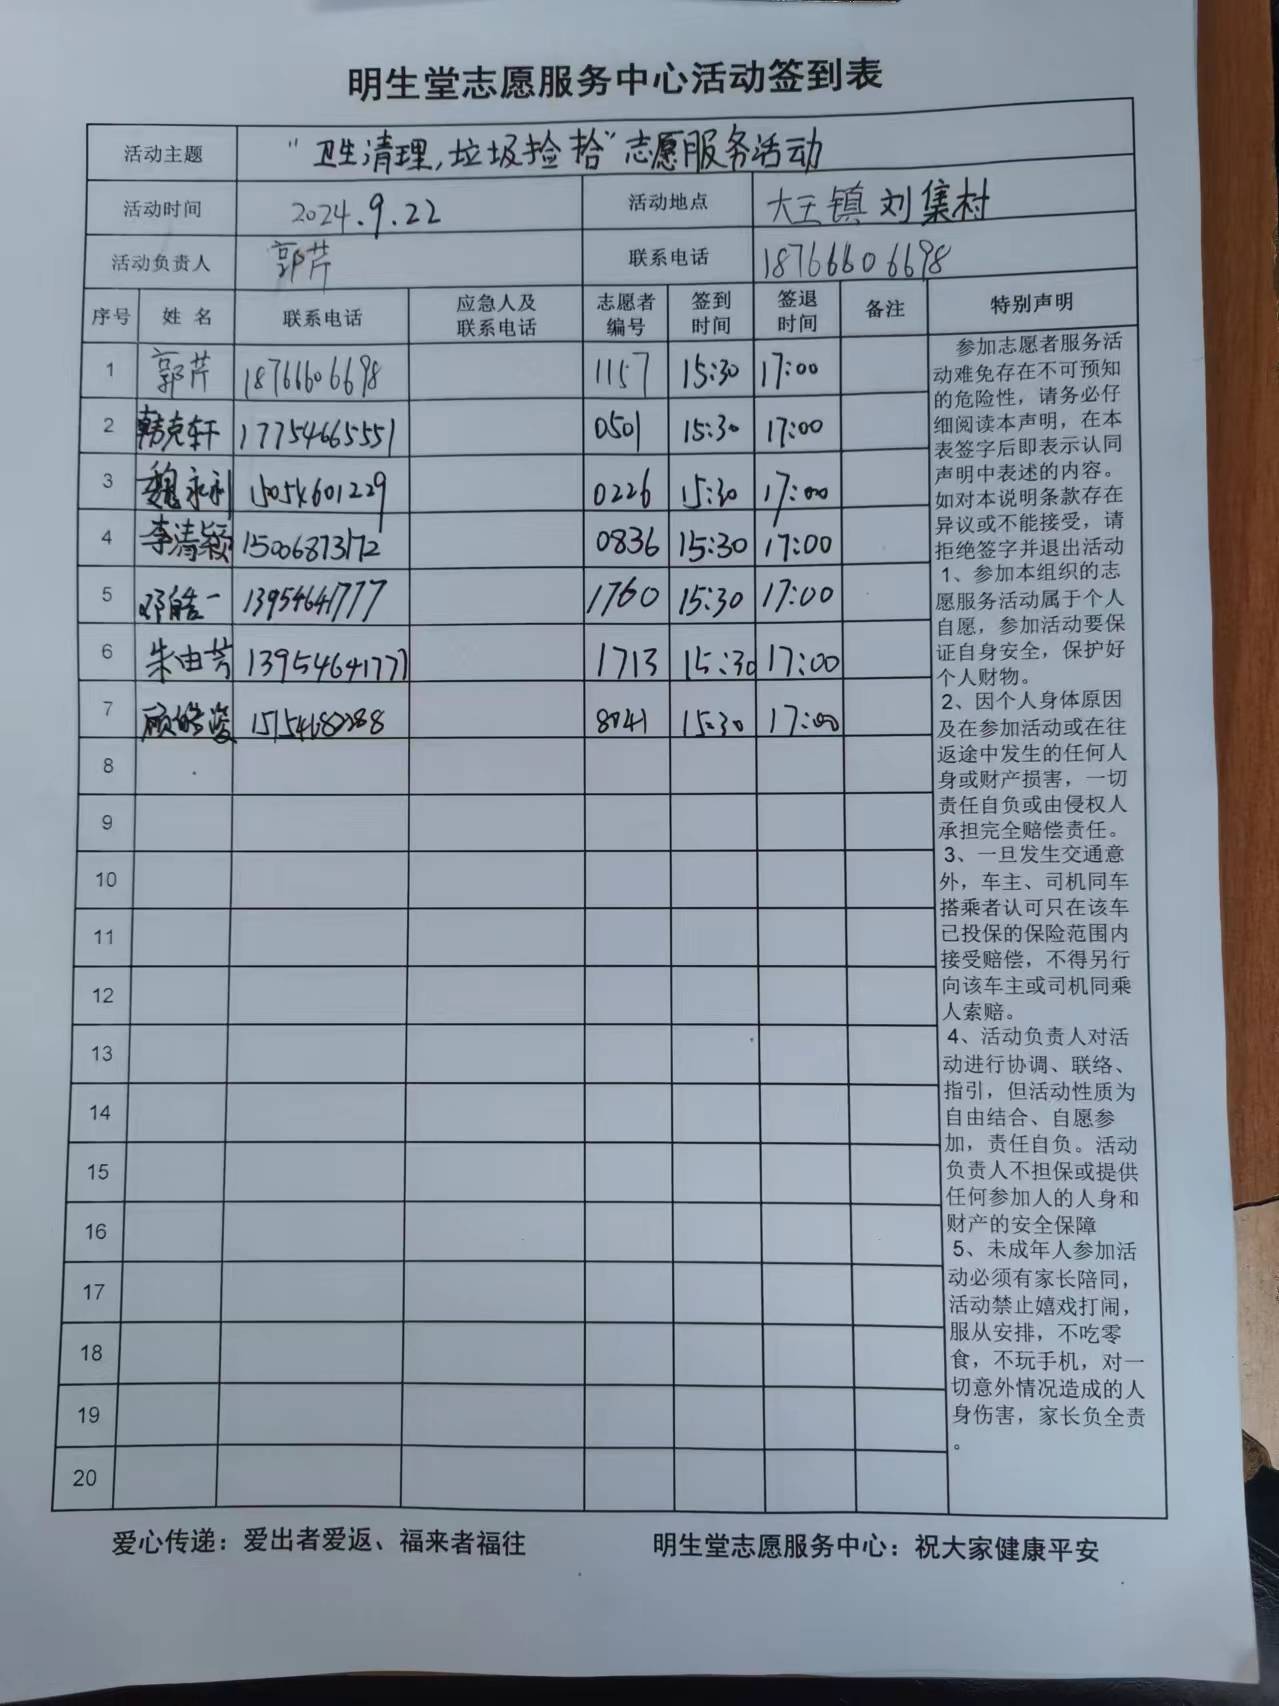 明生堂志愿服务中心活动签到表
活动主题 “卫生清理,垃圾捡拾”志愿服务活动
活动时间 2024.9.22 活动地点 大王镇刘集村
活动负责人 郭芹 联系电话 18766606698
序号 姓名 联系电话 应急人及联系电话 志愿者编号 签到时间 签退时间 备注 特别声明
1 郭芹 18766606698 1157 15:30 17:00
2 韩克轩 17754665551 0501 15:30 17:00
3 魏永利 15054601229 0226 15:30 17:00
4 李清颖 15006873172 0836 15:30 17:00
5 邓皓一 13954641777 1760 15:30 17:00
6 朱由芳 13954641777 1713 15:30 17:00
7 顾皓浚 15154682288 8041 15:30 17:00
8
9
10
11
12
13
14
15
16
17
18
19
20
参加志愿者服务活
动难免存在不可预知
的危险性，请务必仔
细阅读本声明，在本
表签字后即表示认同
声明中表述的内容。
如对本说明条款存在
异议或不能接受，请
拒绝签字并退出活动
1、参加本组织的志
愿服务活动属于个人
自愿，参加活动要保
证自身安全，保护好
个人财物。
2、因个人身体原因
及在参加活动或在往
返途中发生的任何人
身或财产损害，一切
责任自负或由侵权人
承担完全赔偿责任。
3、一旦发生交通意
外，车主、司机同车
搭乘者认可只在该车
已投保的保险范围内
接受赔偿，不得另行
向该车主或司机同乘
人索赔。
4、活动负责人对活
动进行协调、联络、
指引，但活动性质为
自由结合、自愿参
加，责任自负。活动
负责人不担保或提供
任何参加人的人身和
财产的安全保障
5、未成年人参加活
动必须有家长陪同，
活动禁止嬉戏打闹，
服从安排，不吃零
食，不玩手机，对一
切意外情况造成的人
身伤害，家长负全责
。
爱心传递：爱出者爱返、福来者福往 明生堂志愿服务中心：祝大家健康平安